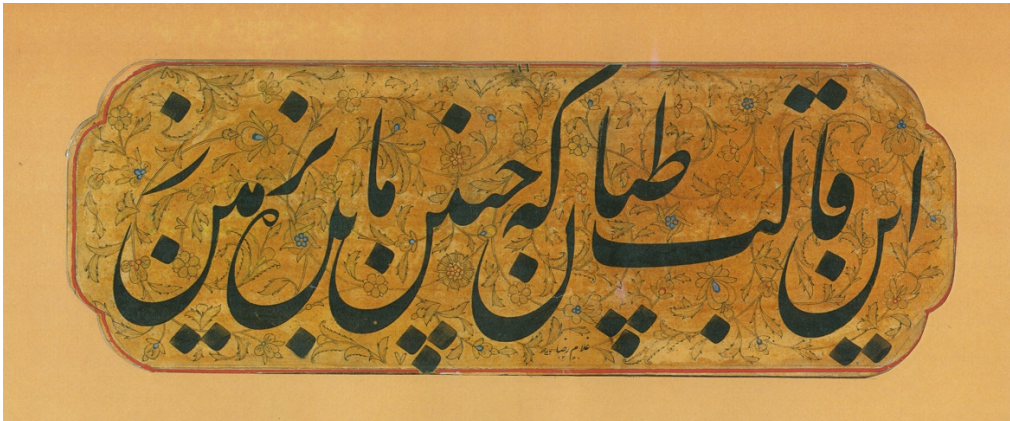 این قالب طپان که چنین مانده بر زمین
غلام رضا